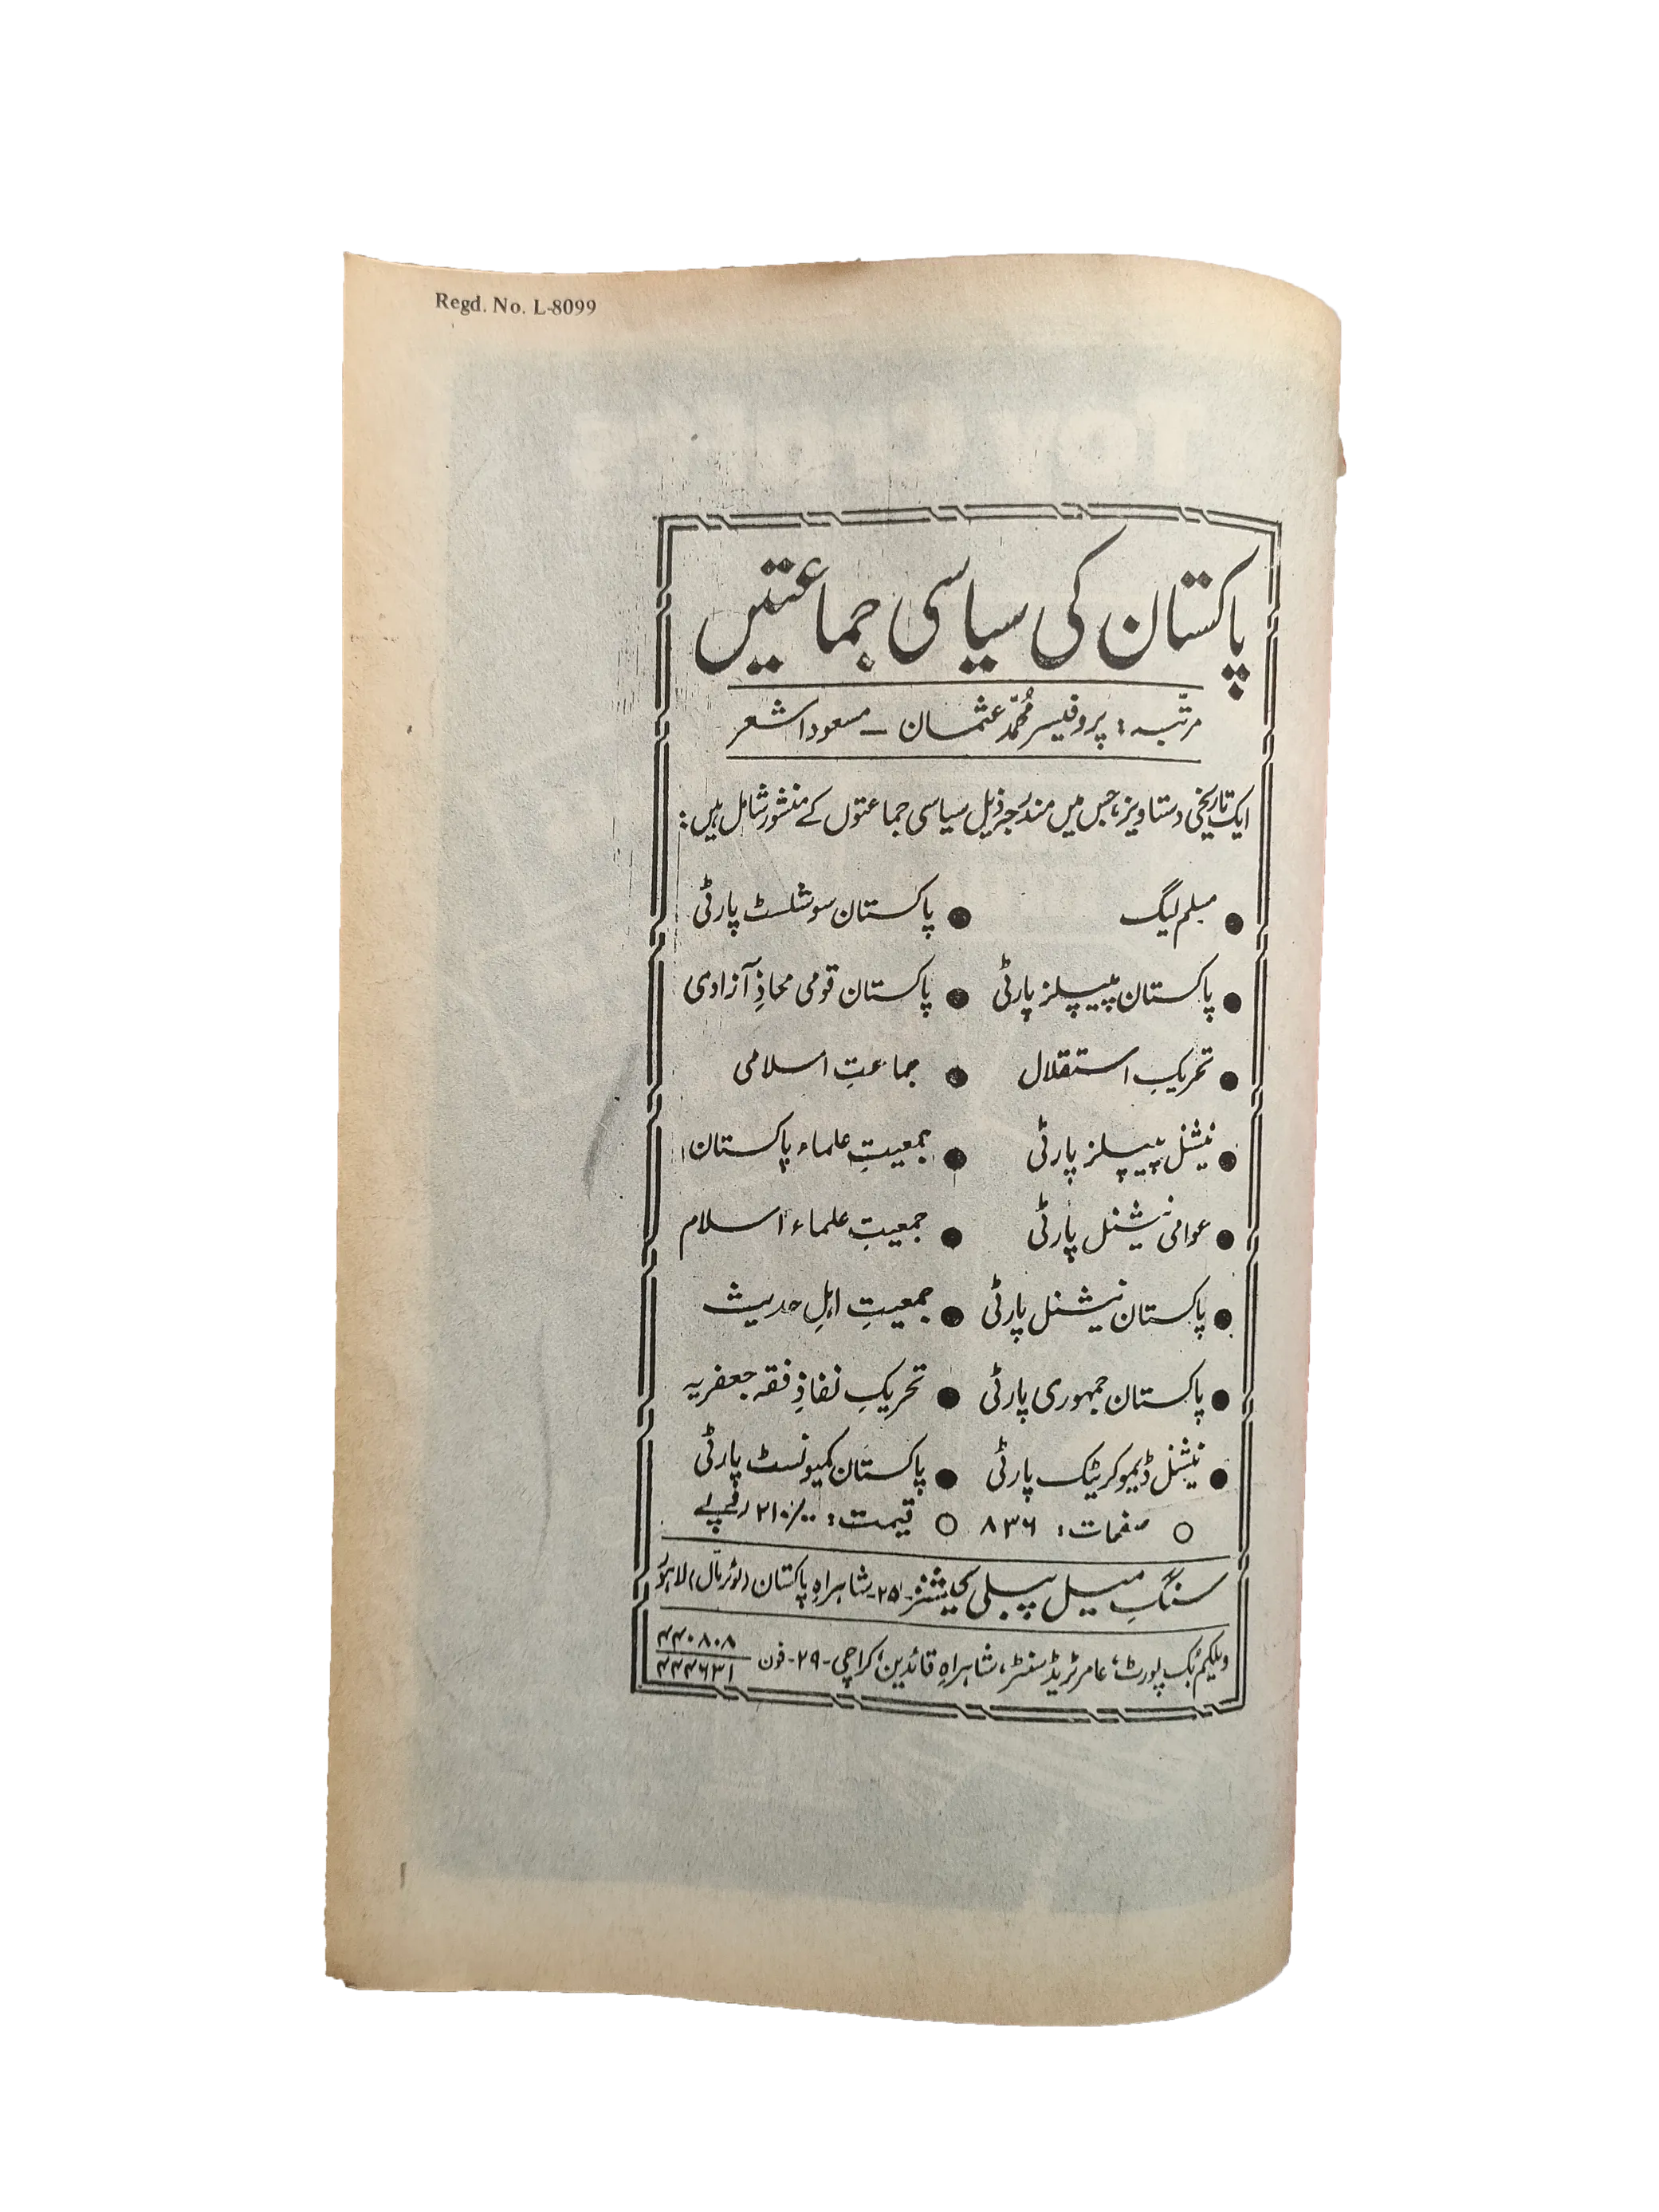 Regd. No. L-8099
پاکستان کی سیاسی جماعتیں
مرتّبہ: پروفیسر محمّد عثمان ـ مسعود اشعر
ایک تاریخی دستاویز، جس میں مندرجہ ذیل سیاسی جماعتوں کے منشور شامل ہیں:
● مسلم لیگ ● پاکستان سوشلسٹ پارٹی
● پاکستان پیپلز پارٹی ● پاکستان قومی محاذِ آزادی
● تحریکِ استقلال ● جماعتِ اسلامی
● نیشنل پیپلز پارٹی ● جمعیتِ علماء پاکستان
● عوامی نیشنل پارٹی ● جمعیتِ علماء اسلام
● پاکستان نیشنل پارٹی ● جمعیتِ اہلِ حدیث
● پاکستان جمہوری پارٹی ● تحریکِ نفاذِ فقہ جعفریہ
● نیشنل ڈیموکریٹک پارٹی ● پاکستان کمیونسٹ پارٹی
○ صفحات: ۸۳۶ ○ قیمت: ۲۱۰/۰۰ روپے
سنگِ میل پبلی کیشنز ـ ۲۵ ـ شاہراہِ پاکستان (لوئر مال) لاہور
ویلکم بُک پورٹ، عامر ٹریڈ سنٹر، شاہراہِ قائدین، کراچی ـ ۲۹ ـ فون ۴۴۰۸۰۸
۴۴۴۶۳۱